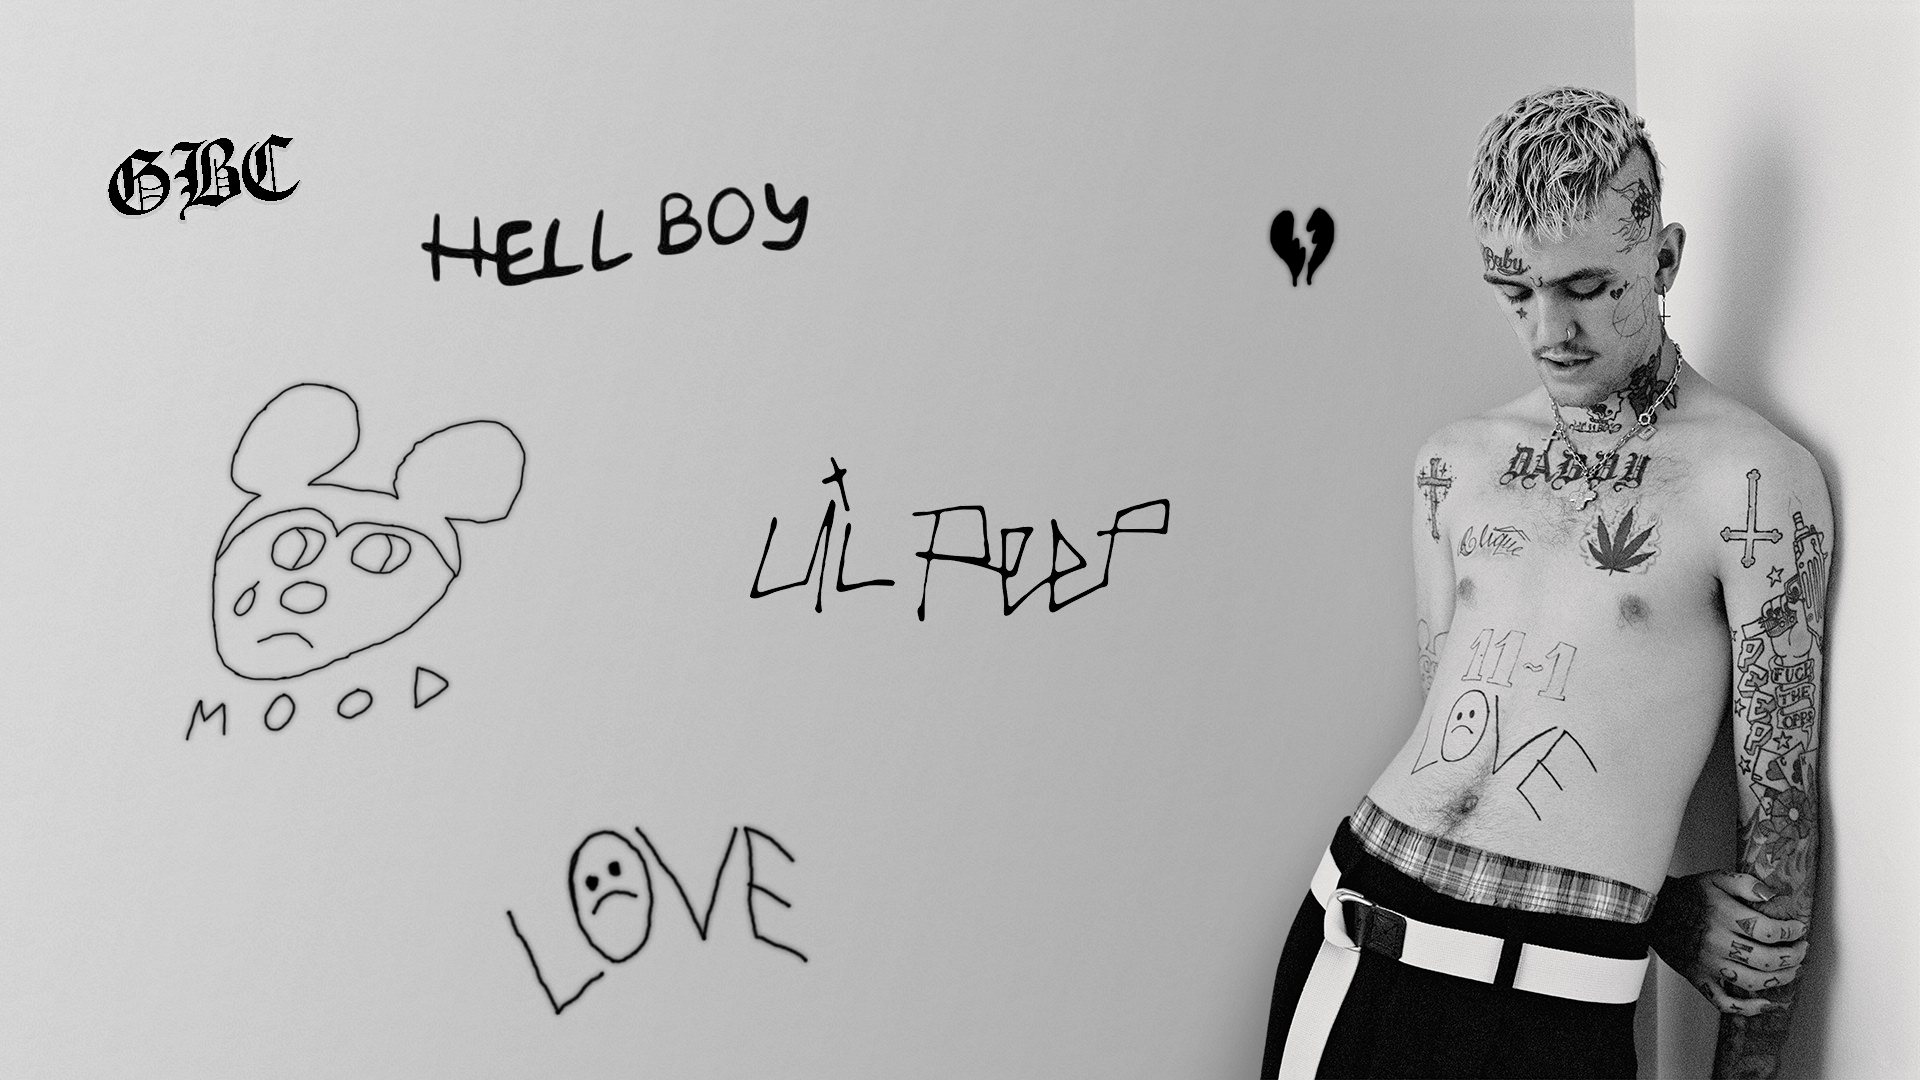 GBC
HELLBOY
MOOD
LiL PEEP
LOVE
Baby
DADDY
Clique
11-1
LOVE
PEEP
FUCK
THE
OPPS